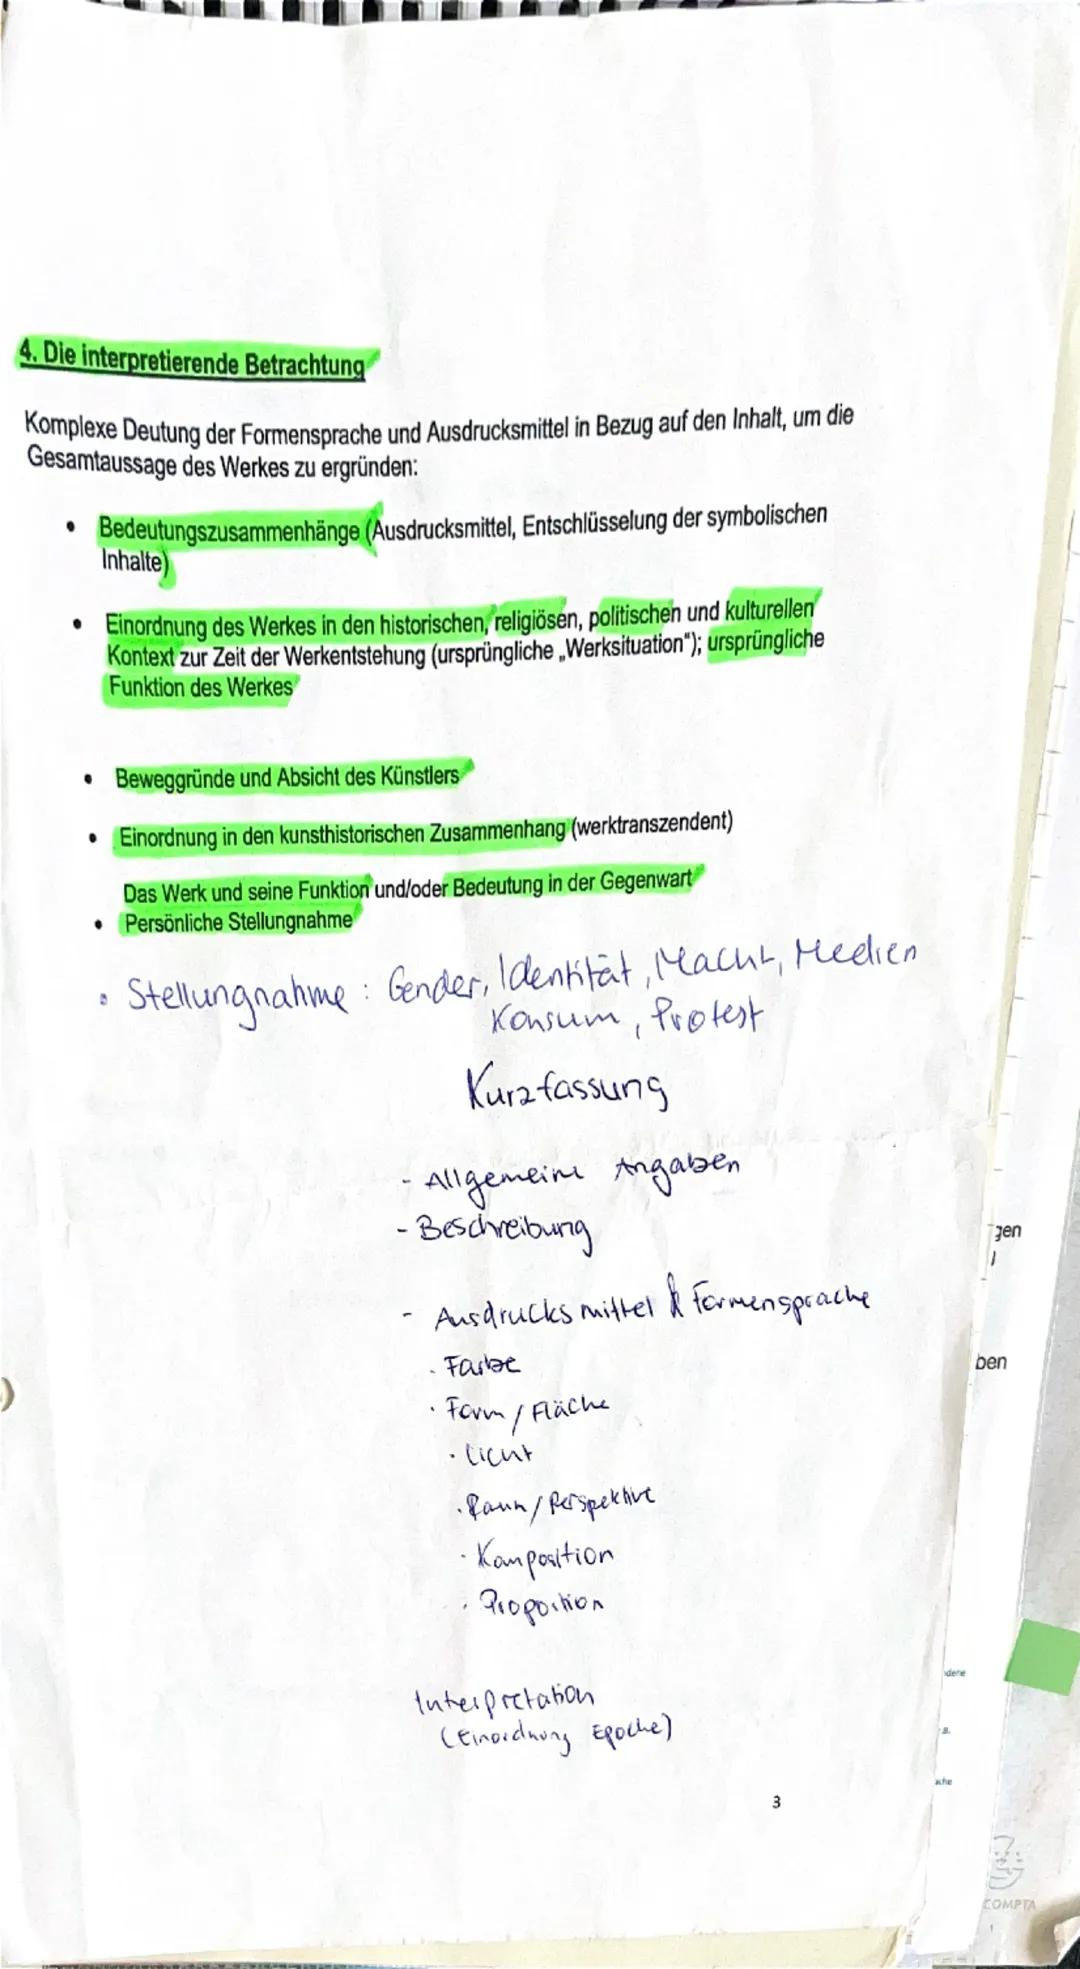 4. Die interpretierende Betrachtung
Komplexe Deutung der Formensprache und Ausdrucksmittel in Bezug auf den Inhalt, um die
Gesamtaussage des Werkes zu ergründen:
• Bedeutungszusammenhänge (Ausdrucksmittel, Entschlüsselung der symbolischen
Inhalte)
• Einordnung des Werkes in den historischen, religiösen, politischen und kulturellen
Kontext zur Zeit der Werkentstehung (ursprüngliche „Werksituation"); ursprüngliche
Funktion des Werkes
• Beweggründe und Absicht des Künstlers
• Einordnung in den kunsthistorischen Zusammenhang (werktranszendent)
Das Werk und seine Funktion und/oder Bedeutung in der Gegenwart
• Persönliche Stellungnahme
• Stellungnahme : Gender, Identität, Macht, Medien
Konsum, Protest
Kurzfassung
- Allgemeine Angaben
- Beschreibung
gen
- Ausdrucksmittel & Formensprache
· Farbe
ben
· Form / Fläche
· Licht
· Raum / Perspektive
· Komposition
· Proportion
dene
Interpretation
(Einordnung Epoche)
3
COMPTA